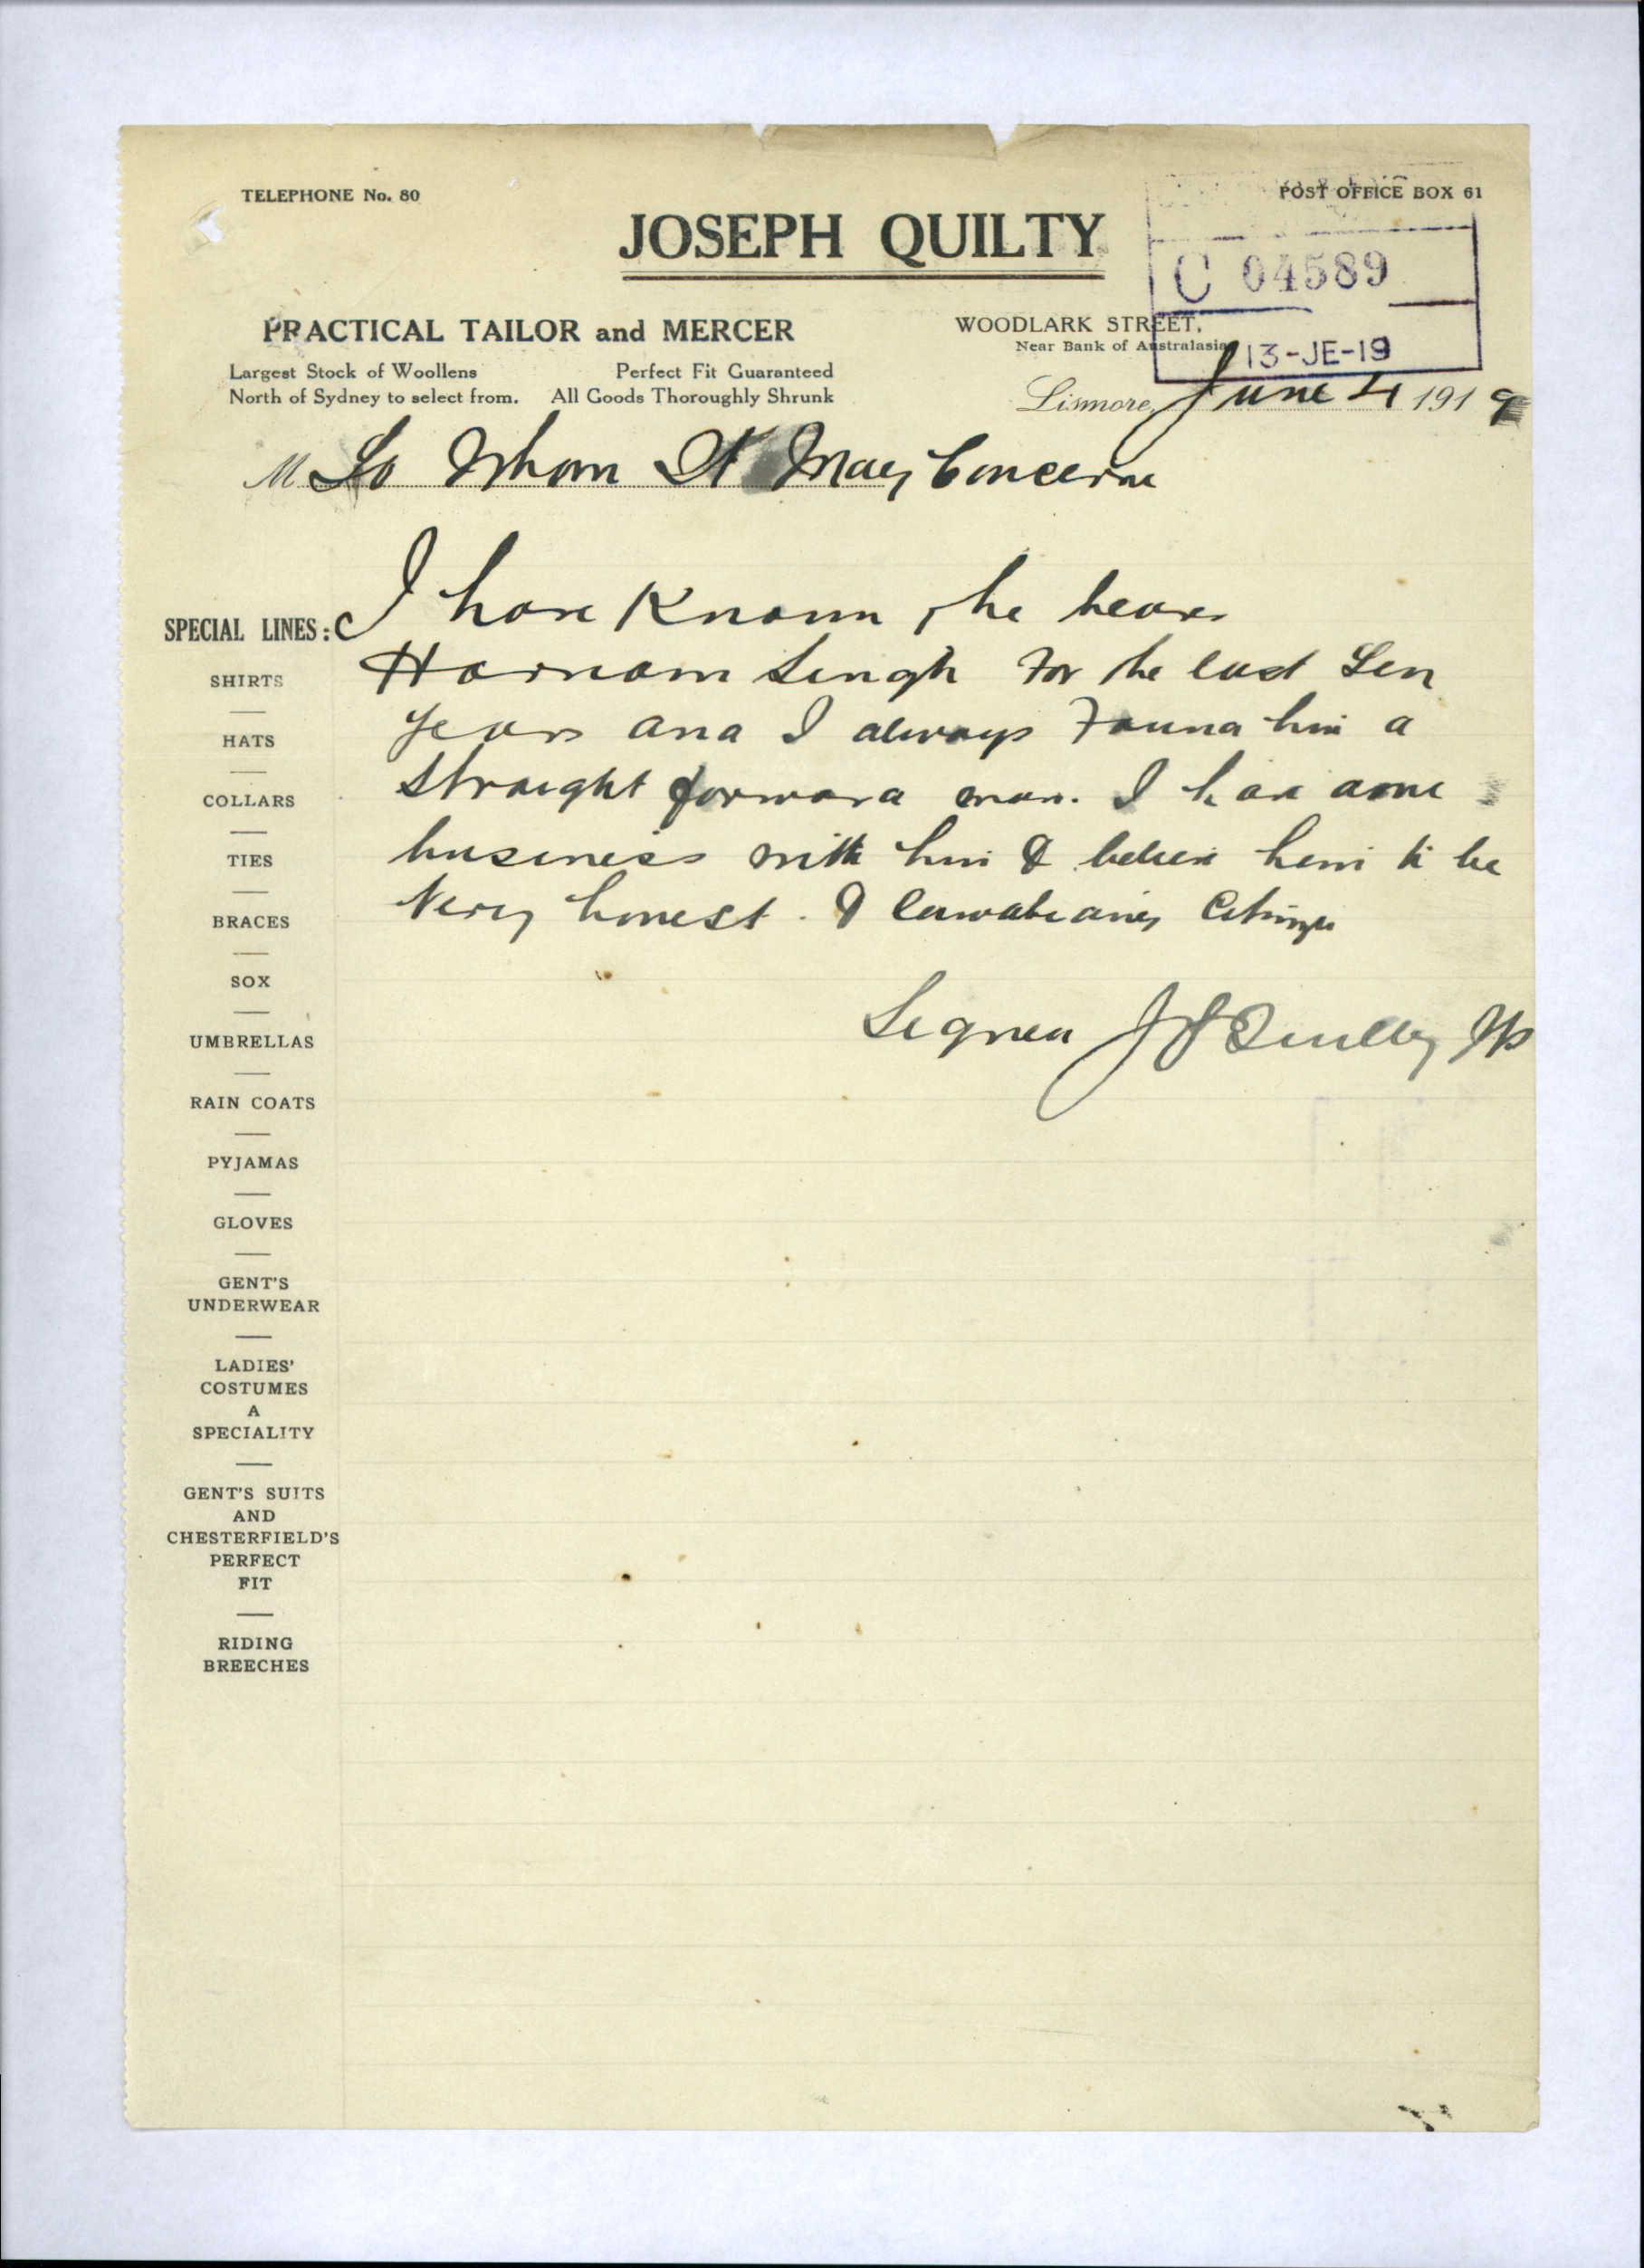 TELEPHONE No. 80
POST OFFICE BOX 61
JOSEPH QUILTY
C 04589
PRACTICAL TAILOR and MERCER
WOODLARK STREET,
Near Bank of Australasia
13-JE-19
Largest Stock of Woollens
North of Sydney to select from.
Perfect Fit Guaranteed
All Goods Thoroughly Shrunk
Lismore, June 4 1919
M To Whom It May Concern
I have Known the bearer
Harnam Singh for the last Ten
years and I always Found him a
straight forward man. I have done
business with him & believe him to be
Very honest. &
Signed J J Quilty JP
SPECIAL LINES:
SHIRTS
HATS
COLLARS
TIES
BRACES
SOX
UMBRELLAS
RAIN COATS
PYJAMAS
GLOVES
GENT'S
UNDERWEAR
LADIES'
COSTUMES
A
SPECIALITY
GENT'S SUITS
AND
CHESTERFIELD'S
PERFECT
FIT
RIDING
BREECHES